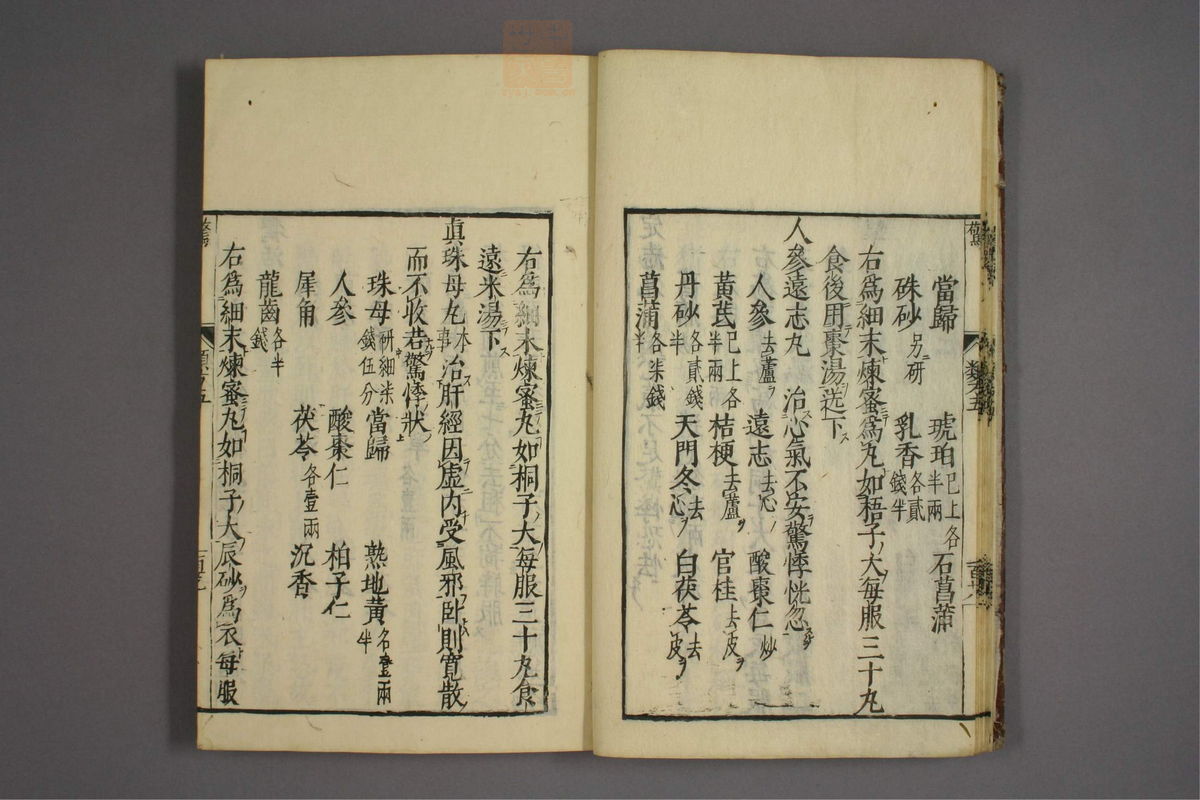 當歸 琥珀已上各半兩 石菖蒲
硃砂另研 乳香各貳錢半
右爲細末煉蜜爲丸如梧子大每服三十丸
食後用棗湯送下
人參遠志丸 治心氣不安驚悸恍忽
人參去蘆 遠志去心 酸棗仁炒
黃芪已上各半兩 桔梗去蘆 官桂去皮
丹砂各貳錢半 天門冬去心 白茯苓去皮
菖蒲各柒錢半
右爲細末煉蜜丸如桐子大每服三十丸食
遠米湯下
眞珠母丸本事 治肝經因虛內受風邪臥則寬散
而不收若驚悸狀
珠母研細米錢伍分 當歸 熟地黃各壹兩半
人參 酸棗仁 柏子仁
犀角 茯苓各壹兩 沉香
龍齒各半錢
右爲細末煉蜜丸如桐子大辰砂爲衣每服